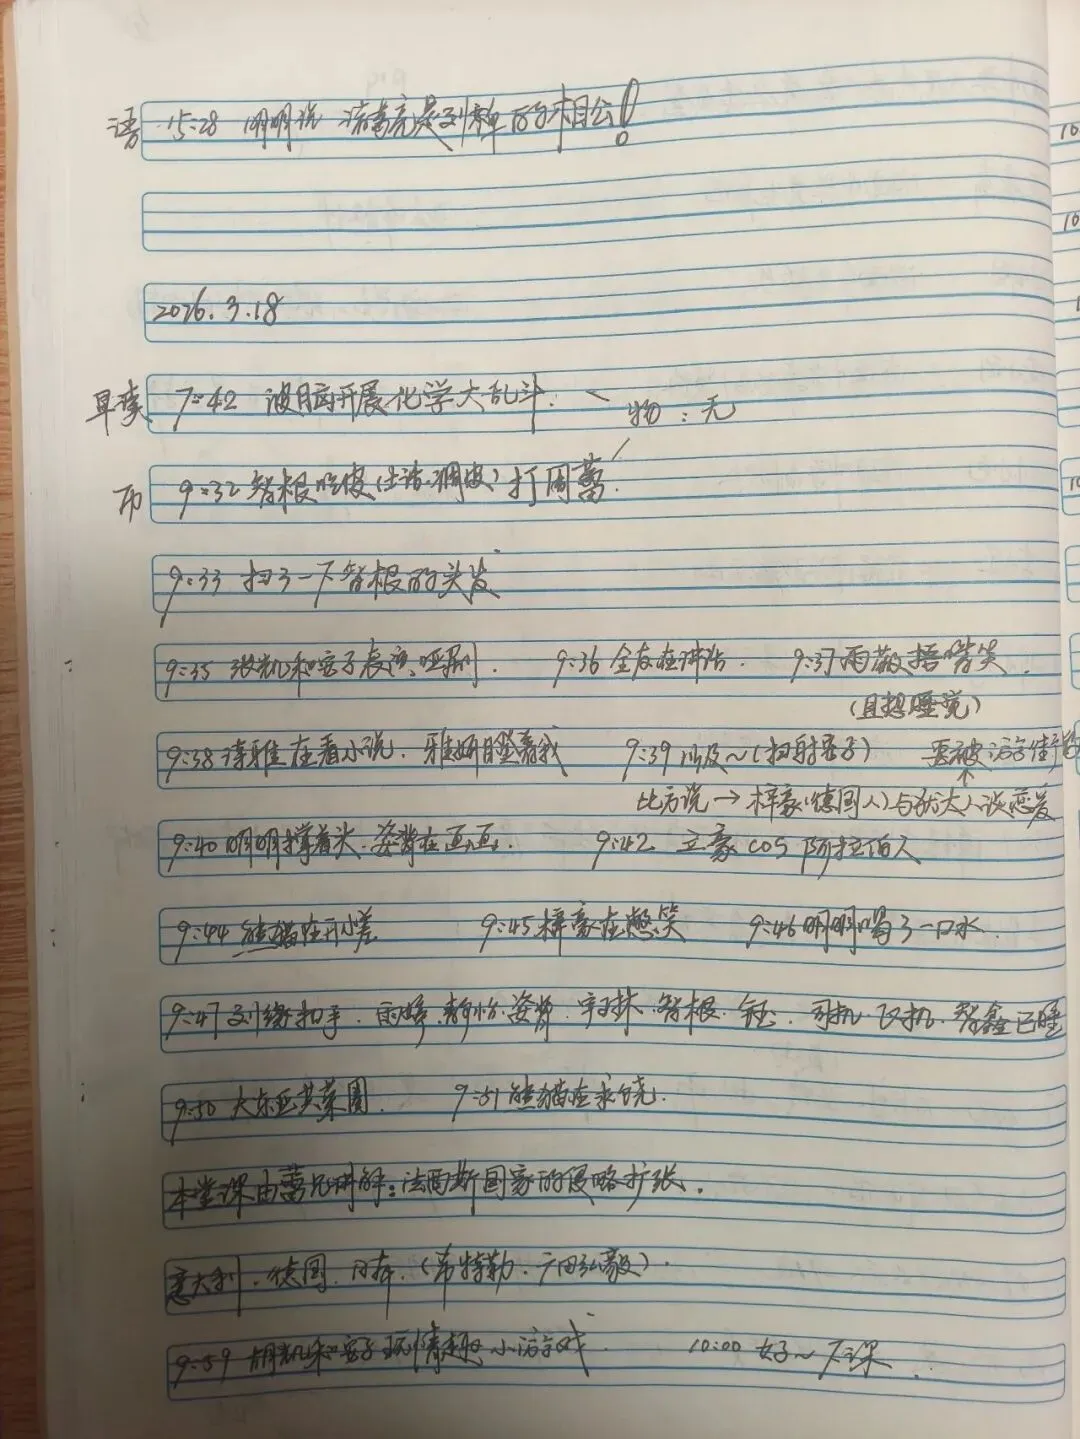 语 15:28 明明说 诸葛亮是刘禅的相公!
2026.3.18
早读 7:42 波脑开展化学大乱斗. 物:无
历 9:32 智根吃皮(土话:调皮)打周蕾.
9:33 扫了一下智根的头发
9:35 张凯和密子表演哑剧. 9:36 全友在讲话. 9:37 雨薇捂嘴笑.
(且想睡觉)
9:38 诗雅在看小说. 雅妍瞪着我 9:39 以及~(扫射密子) 要被
比方说→梓豪(德国人)与犹太人谈恋爱
9:40 明明撑着头. 姿霁在画画. 9:42 立豪cos阿拉伯人
9:44 熊猫在开小差 9:45 梓豪在憋笑 9:46 明明喝了一口水.
9:47 刘缘扣手. 静怡. 姿霁. 智根. 钰. 司机 双机. 智鑫已睡
9:50 大东亚共荣圈. 9:51 熊猫在求饶.
本堂课由蕾兄讲解:法西斯国家的侵略扩张.
意大利. 德国. 日本. (希特勒. 广田弘毅).
9:59 胡凯和密子玩情趣小游戏. 10:00 好~下课.